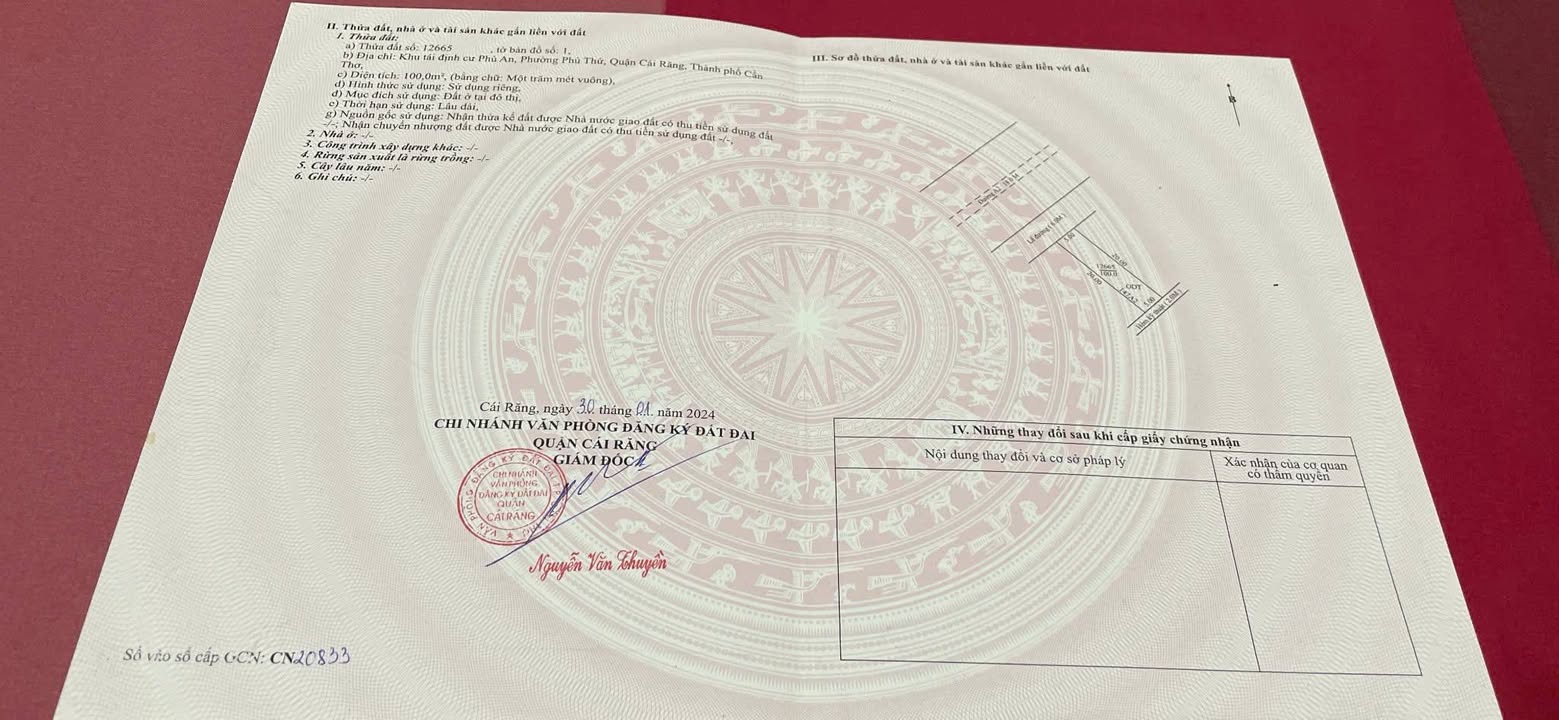 II. Thửa đất, nhà ở và tài sản khác gắn liền với đất
1. Thửa đất:
a) Thửa đất số: 12665 , tờ bản đồ số: 1,
b) Địa chỉ: Khu tái định cư Phú An, Phường Phú Thứ, Quận Cái Răng, Thành phố Cần
Thơ,
c) Diện tích: 100,0m², (bằng chữ: Một trăm mét vuông),
d) Hình thức sử dụng: Sử dụng riêng,
đ) Mục đích sử dụng: Đất ở tại đô thị,
e) Thời hạn sử dụng: Lâu dài,
g) Nguồn gốc sử dụng: Nhận thừa kế đất được Nhà nước giao đất có thu tiền sử dụng đất
-/-; Nhận chuyển nhượng đất được Nhà nước giao đất có thu tiền sử dụng đất -/-,
2. Nhà ở: -/-
3. Công trình xây dựng khác: -/-
4. Rừng sản xuất là rừng trồng: -/-
5. Cây lâu năm: -/-
6. Ghi chú: -/-
Cái Răng, ngày 30 tháng 01. năm 2024
CHI NHÁNH VĂN PHÒNG ĐĂNG KÝ ĐẤT ĐAI
QUẬN CÁI RĂNG
GIÁM ĐỐC
CHI NHÁNH
VĂN PHÒNG
ĐĂNG KÝ ĐẤT ĐAI
QUẬN
CÁI RĂNG
Nguyễn Văn Thuyền
Số vào sổ cấp GCN: CN20833
III. Sơ đồ thửa đất, nhà ở và tài sản khác gắn liền với đất
B
Lề đường ( 4.0M )
5.00
20.00
12665
100.0
20.00
ODT
5.00
Hẻm kỹ thuật ( 2.0M )
IV. Những thay đổi sau khi cấp giấy chứng nhận
Nội dung thay đổi và cơ sở pháp lý
Xác nhận của cơ quan
có thẩm quyền